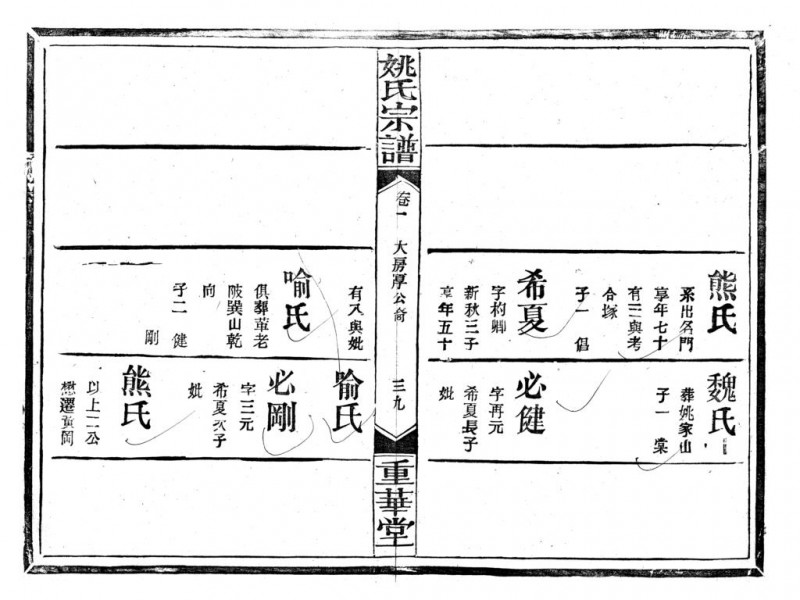 熊氏
系出名門
享年七十
有三與考
合塚
子一 倡
希夏
字杓卿
新秋三子
享年五十
魏氏
葬姚家山
子一 棠
必健
字再元
希夏長子
妣
姚氏宗譜
卷一 大房厚公裔 三九
重華堂
有八與妣
喻氏
俱葬董老
陂巽山乾
向
子二 健
剛
喻氏
必剛
字三元
希夏次子
妣
熊氏
以上二公
懋遷黃岡